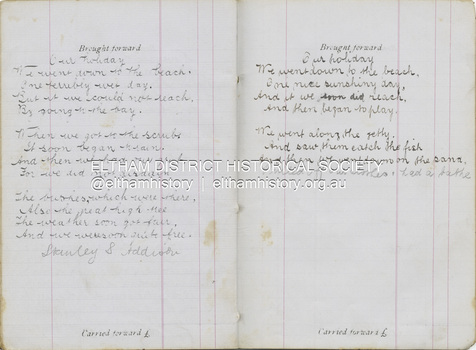 Brought forward
Our holiday
We went down to the beach.
One terribly wet day.
But it we could not reach,
By going the way.
When we got to the scrubs
It soon began to rain.
And then we
For we did
The bushes, which were there.
Also the great high tree
The weather soon got fair,
And we were soon quite free.
Stanley S Addison
Carried forward £
Brought forward
Our holiday
We went down to the beach,
One nice sunshiny day,
And it we soon did reach,
And then began to play.
We went along the jetty,
And saw them catch the fish
And then we sat on the sand,
had a bathe
Carried forward £
ELTHAM DISTRICT HISTORICAL SOCIETY
@elthamhistory | elthamhistory.org.au